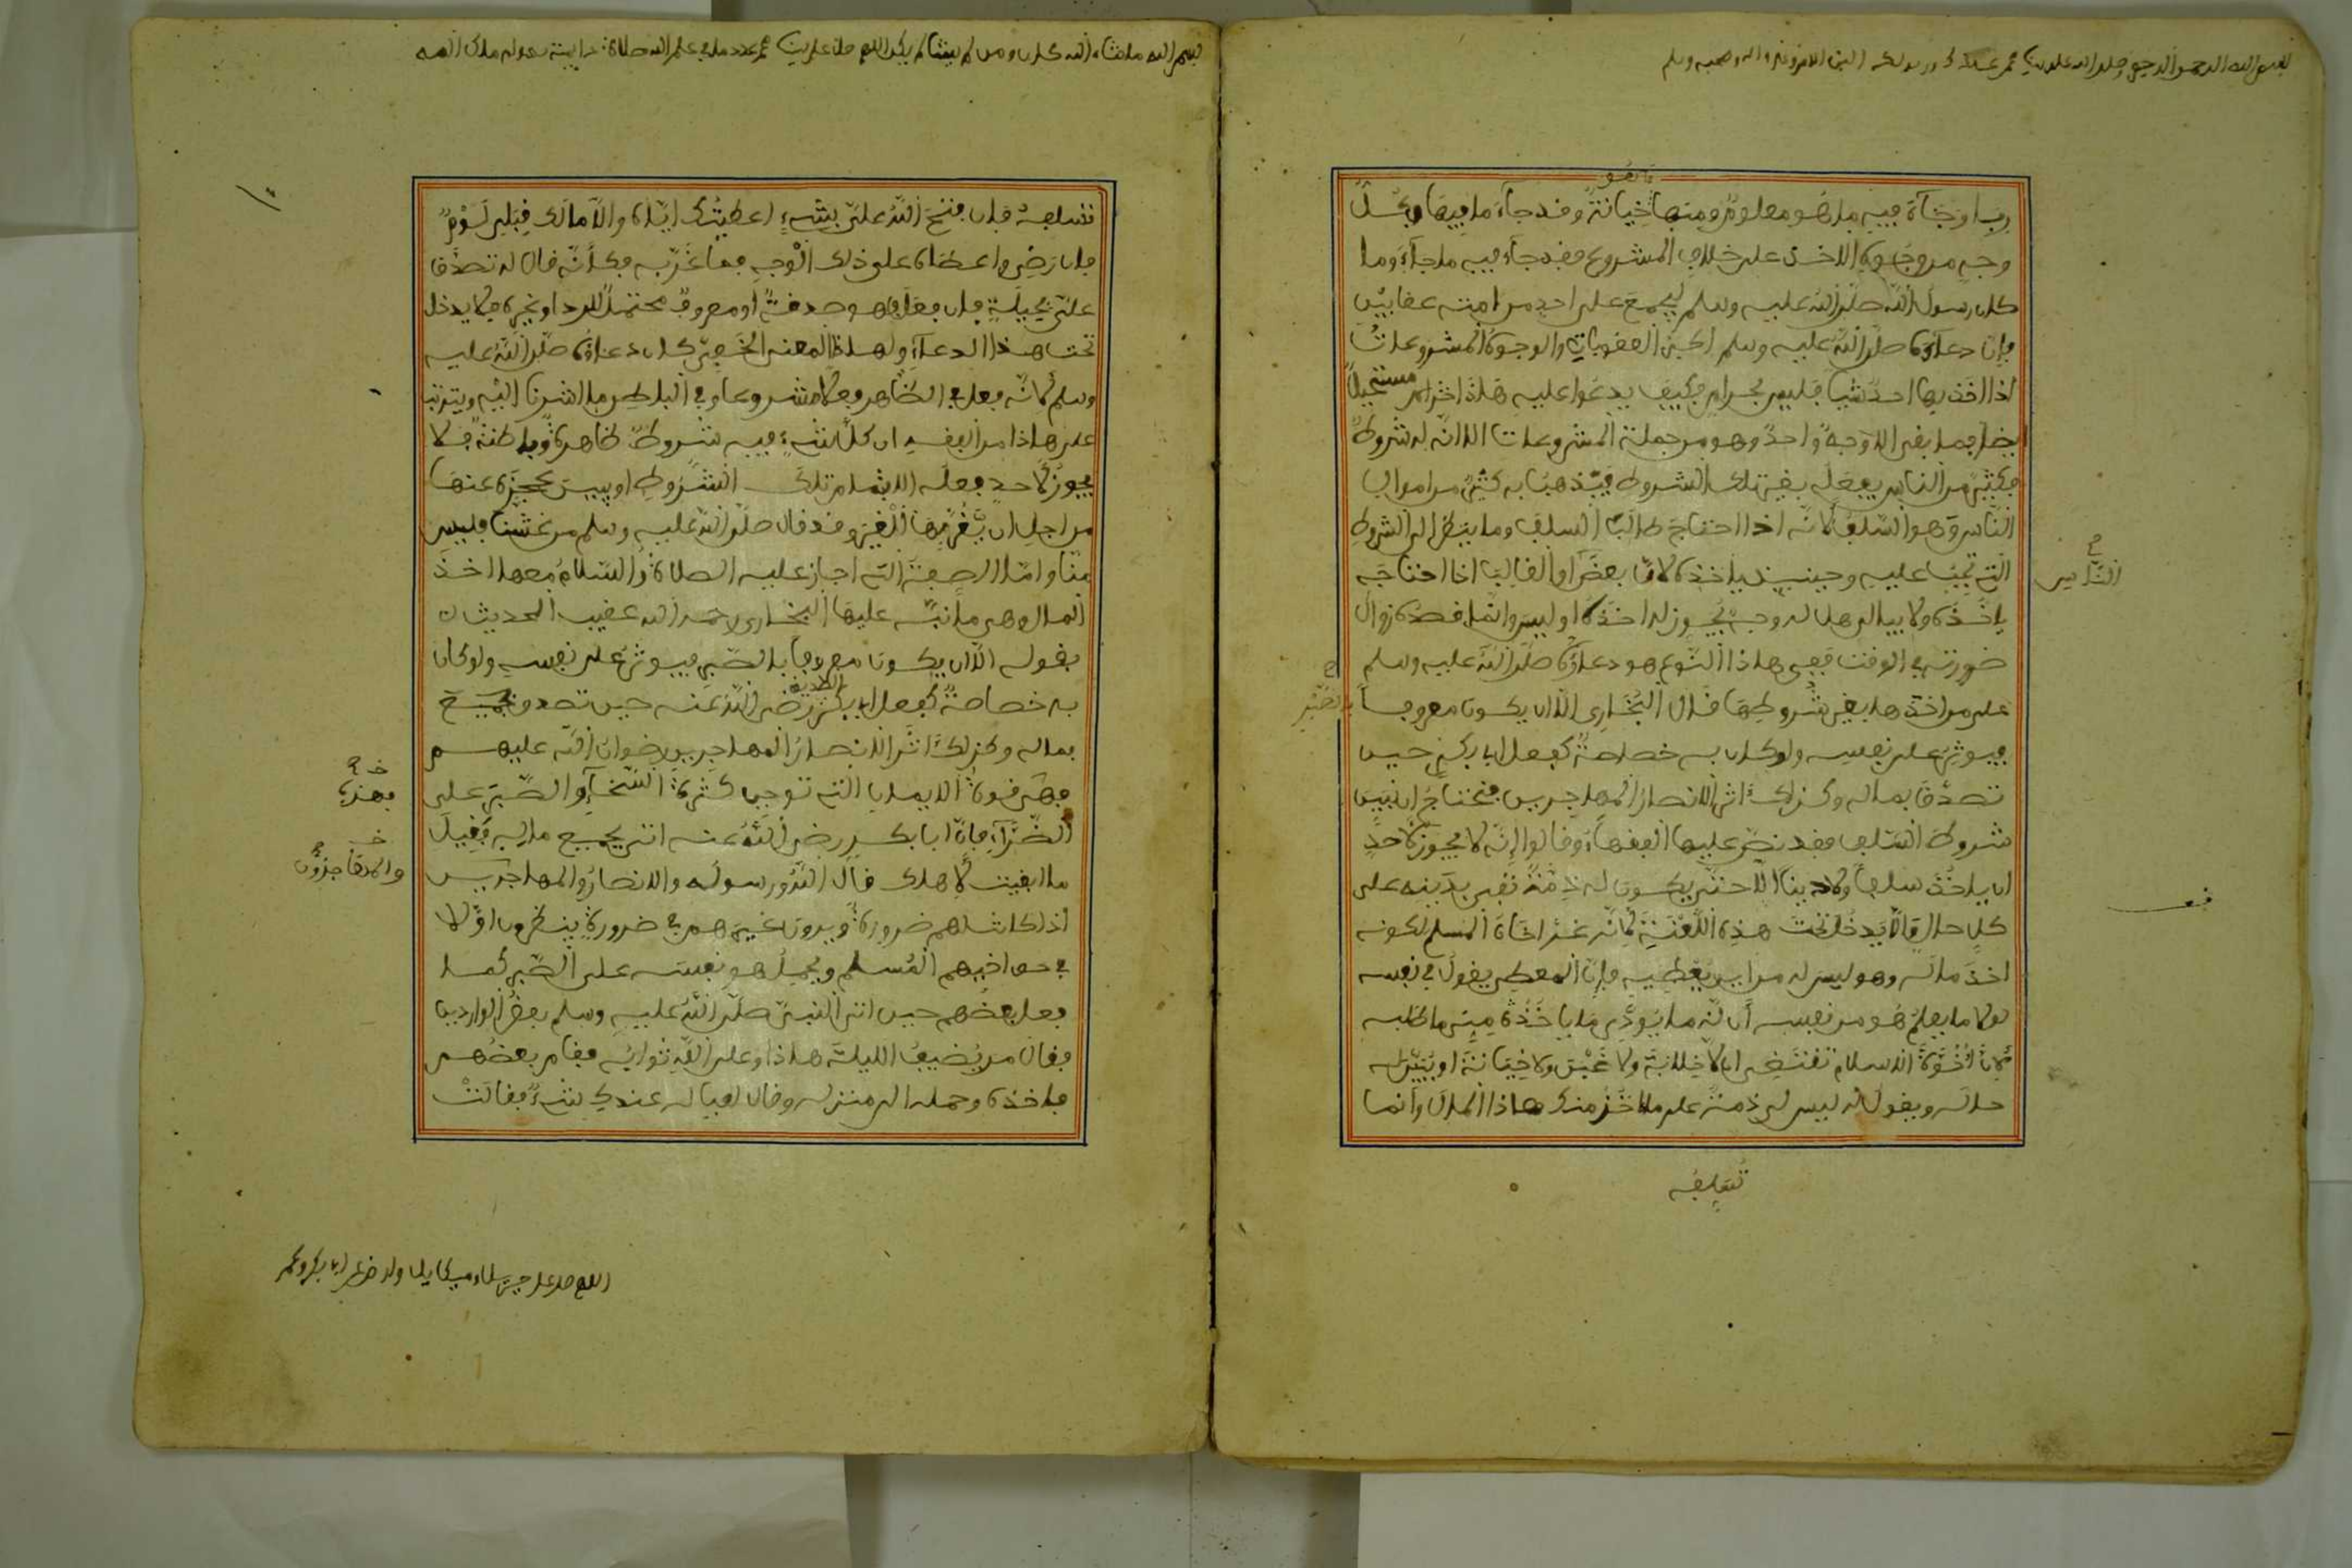 بسم الله الرحمن الرحيم وصلى الله على سيدنا محمد عبدك ورسولك النبي الامي وعلى اله وصحبه وسلم
ربا وخباة فيه ما هو معلوم ومنها خيانة وقد جاء ما فيها وبكل
وجه من وجوه الاخذ على خلاف المشروع فقد جاء فيه ما جاء وما
كان رسول الله صلى الله عليه وسلم ليجمع على احد من امته عقابين
فان دعاءه صلى الله عليه وسلم اكبر العقوبات والوجوه المشروعات
اذا اخذ بها احد شيا فليس بحرام فكيف يدعوا عليه هاذا اخر امر مستحيلا
فما بقي الا وجه واحد وهو من جملة المشروعات الا انه له شروط
فكثير من الناس يفعله بغير تلك الشروط فيذهب به كثير من اموال
الناس وهو السلف لانه اذا احتاج طالب السلف وما ينظر الى الشروط
التي تجب عليه وحينيذ ياخذه لان بعض او الغالب اذا احتاج
ياخذه ولا يبالي هل له وجه يجوز له اخذه او ليس وانما قصده زوال
ضرورته في الوقت فعلى هاذا النوع هو دعاؤه صلى الله عليه وسلم
على من اخذها بغير شروطها قال البخاري الا ان يكون معروفا
فيوثر على نفسه ولو كان به خصاصة كفعل ابي بكر حين
تصدق بماله وكذلك اثر الانصار المهاجرين فنحتاج ان نبين
شروط السلف فقد نص عليها الفقهاء وقالوا انه لا يجوز لاحد
ان ياخذ سلفا ولا دينا الا حتى يكون له ذمة تفي بدينه على
كل حال والا يدخل تحت هذه اللعنة لانه غر اخاه المسلم لكونه
اخذ ماله وهو ليس له من اين يعطيه فان المعطي يقول في نفسه
لولا ما يعلم هو من نفسه ان له ما يودي ما ياخذه مني ما طلبه
لان اخوة الاسلام تقتضي ان لا خلابة ولا غبن ولا خيانة او يبين له
حاله ويقول له ليس لي ذمة على ما اخذ منك هاذا المال وانما
الناس
بالصبر
تسلفه
بسم الله ما شاء الله كان وما لم يشا لم يكن اللهم صل على سيدنا محمد عدد ما في علم الله صلاة دايمة بدوام ملك الله
تسلفه فان فتح الله علي بشيء اعطيتك اياه والا مالك قبلي لوم
فان رضي واعطاه على ذلك الوجه فما غر به فكانه قال له تصدق
علي بحيلة فان فعل فهو صدقة او معروف محتمل للرد او غيره فلا يدخل
تحت هذا الدعاء ولهاذا المعنى الخفي كان دعاؤه صلى الله عليه
وسلم لانه فعل في الظاهر فعلا مشروعا وفي الباطن ما اشرنا اليه ويترتب
على هاذا من الفقه ان كل شيء فيه شروط ظاهرة وباطنة فلا
يجوز لاحد فعله الا بتمام تلك الشروط او يبين عجزه عنها
من اجل ان يغر بها الغير وقد قال صلى الله عليه وسلم من غشنا فليس
منا واما الصفة التي اجاز عليه الصلاة والسلام معها اخذ
المال فهي ما نبه عليها البخاري رحمه الله عقيب الحديث
بقوله الا ان يكون معروفا بالصبر فيوثر على نفسه ولو كان
به خصاصة كفعل ابي بكر الصديق رضي الله عنه حين تصدق بجميع
بماله وكذلك اثر الانصار المهاجرين رضوان الله عليهم
فهي قوة الايمان التي توجب كثرة السخاء والصبر على
الضراء فان ابا بكر رضي الله عنه اتى بجميع ماله فقيل
ما ابقيت لاهلك قال الله ورسوله والانصار والمهاجرين
اذا كانت لهم ضرورة ويرون غيرهم في ضرورة ينظرون اولا
في حق اخيهم المسلم ويحمل هو نفسه على الصبر كما
فعل بعضهم حين اتى النبي صلى الله عليه وسلم بعض الواردين
فقال من يضيف الليلة هاذا وعلى الله ثوابه فقام بعضهم
فاخذه وحمله الى منزله وقال لعياله عندك شيء فقالت
والمهاجرون